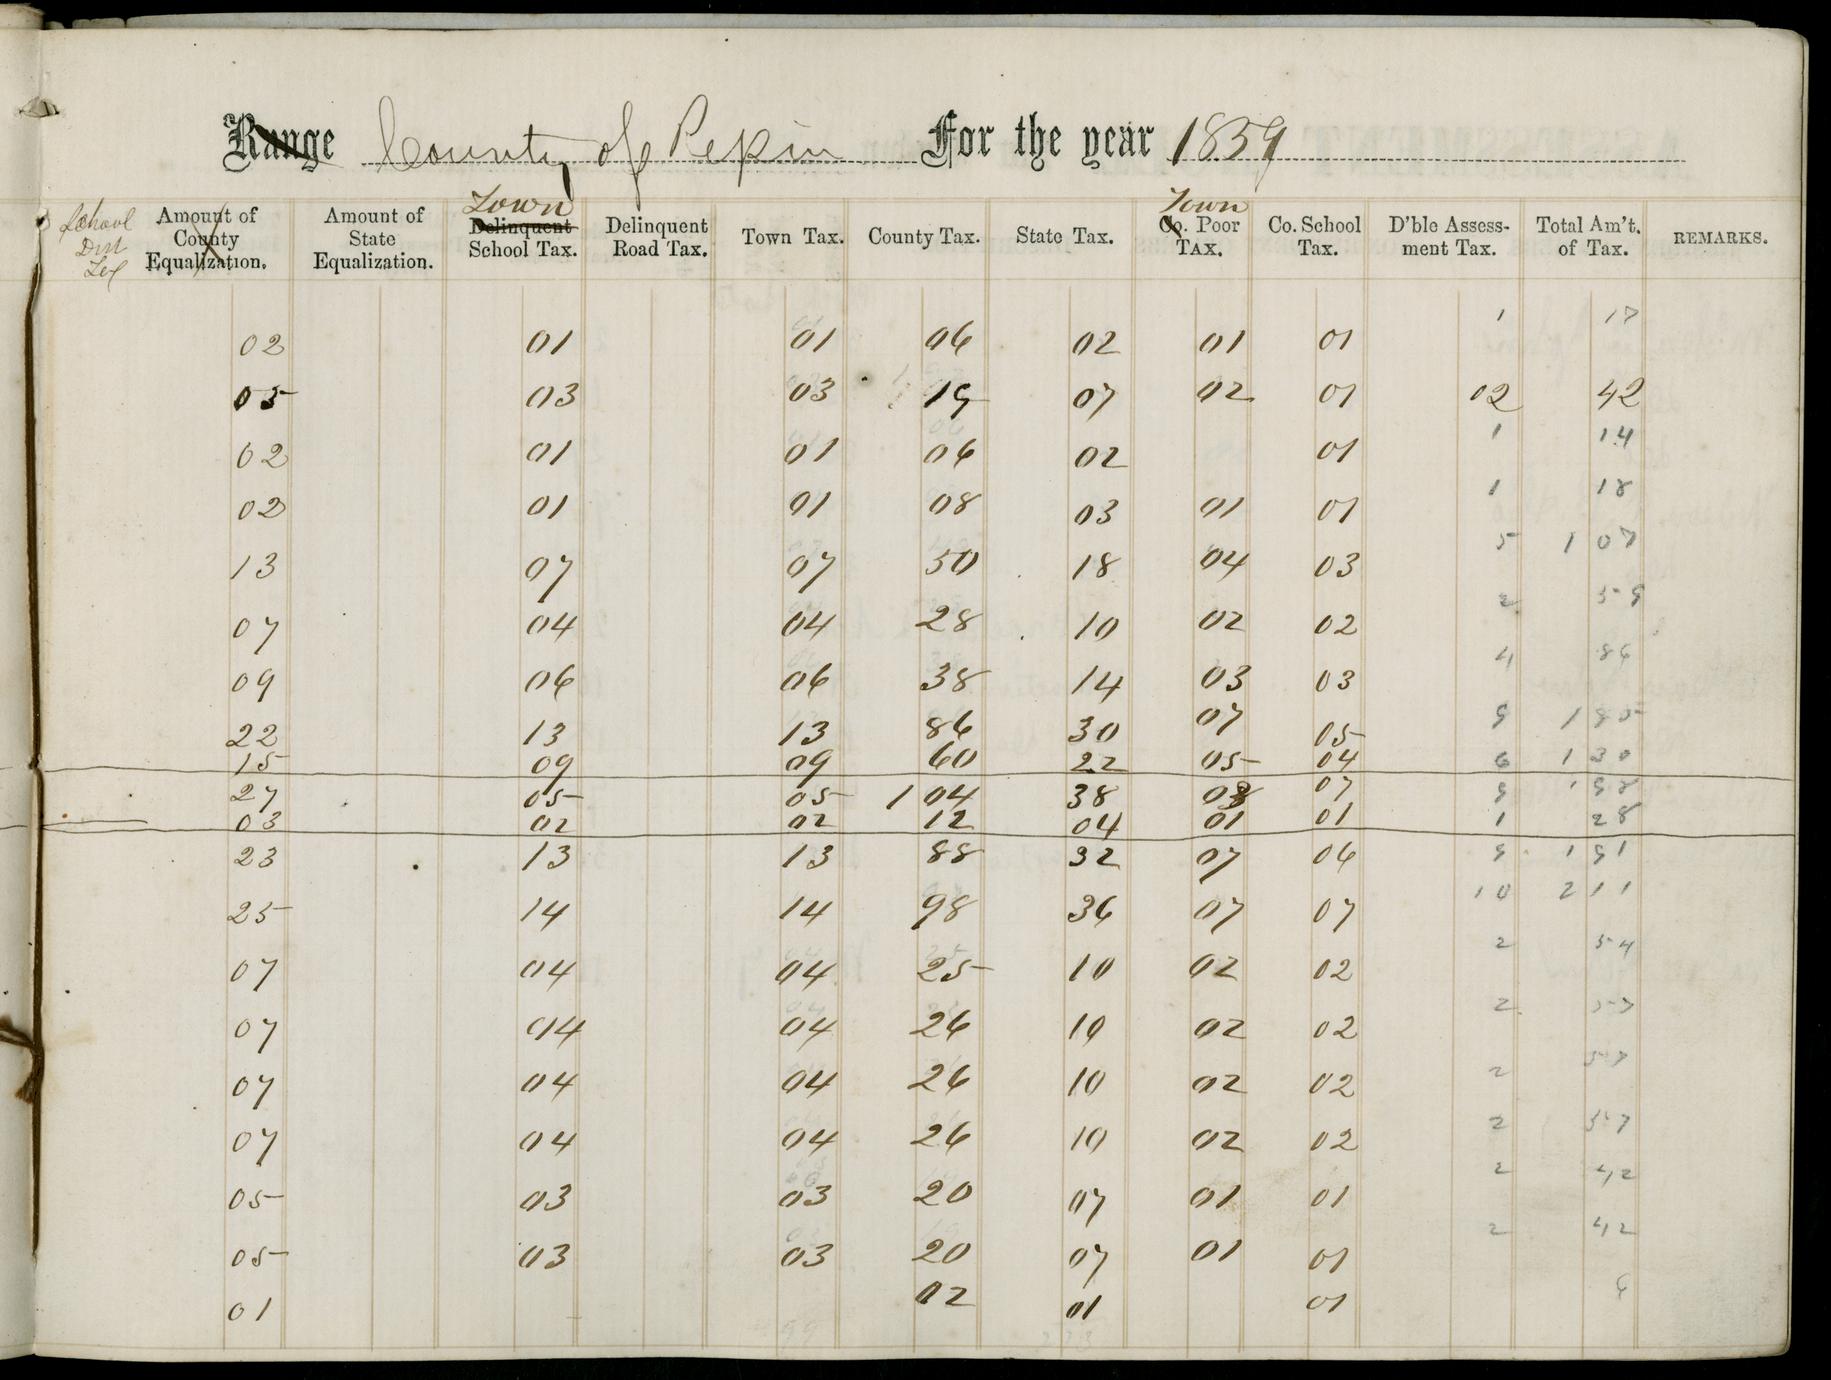 Range County of Pepin For the year 1859
School Dist Tax Amount of County Equalization. Amount of State Equalization. Town Delinquent School Tax. Delinquent Road Tax. Town Tax. County Tax. State Tax. Town Co. Poor TAX. Co. School Tax. D'ble Assess-ment Tax. Total Am't. of Tax. REMARKS.
02 01 01 06 02 01 01 1 17
05 03 03 19 07 02 01 02 42
02 01 01 06 02 01 1 14
02 01 01 08 03 01 01 1 18
13 07 07 50 18 04 03 5 1 07
07 04 04 28 10 02 02 2 59
09 06 06 38 14 03 03 4 86
22 13 13 86 30 07 05 9 1 85
15 09 09 60 22 05 04 6 1 30
27 05 05 1 04 38 07 9
03 02 02 12 04 01 01 1 28
23 13 13 88 32 07 06 9 1 91
25 14 14 98 36 07 07 10 2 11
07 04 04 25 10 02 02 2 54
07 04 04 26 10 02 02 2 57
07 04 04 26 10 02 02 2 57
07 04 04 26 10 02 02 2 57
05 03 03 20 07 01 01 2 42
05 03 03 20 07 01 01 2 42
01 02 01 01